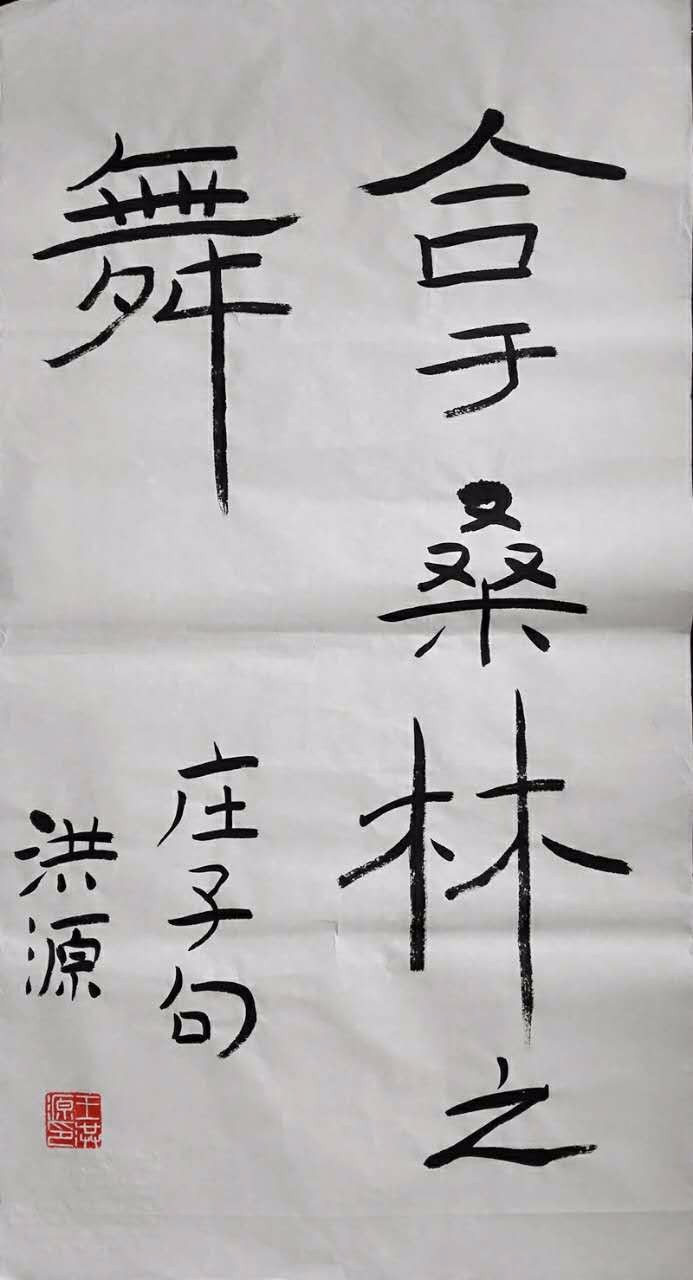 合于桑林之
舞
庄子句
洪源
王洪源印